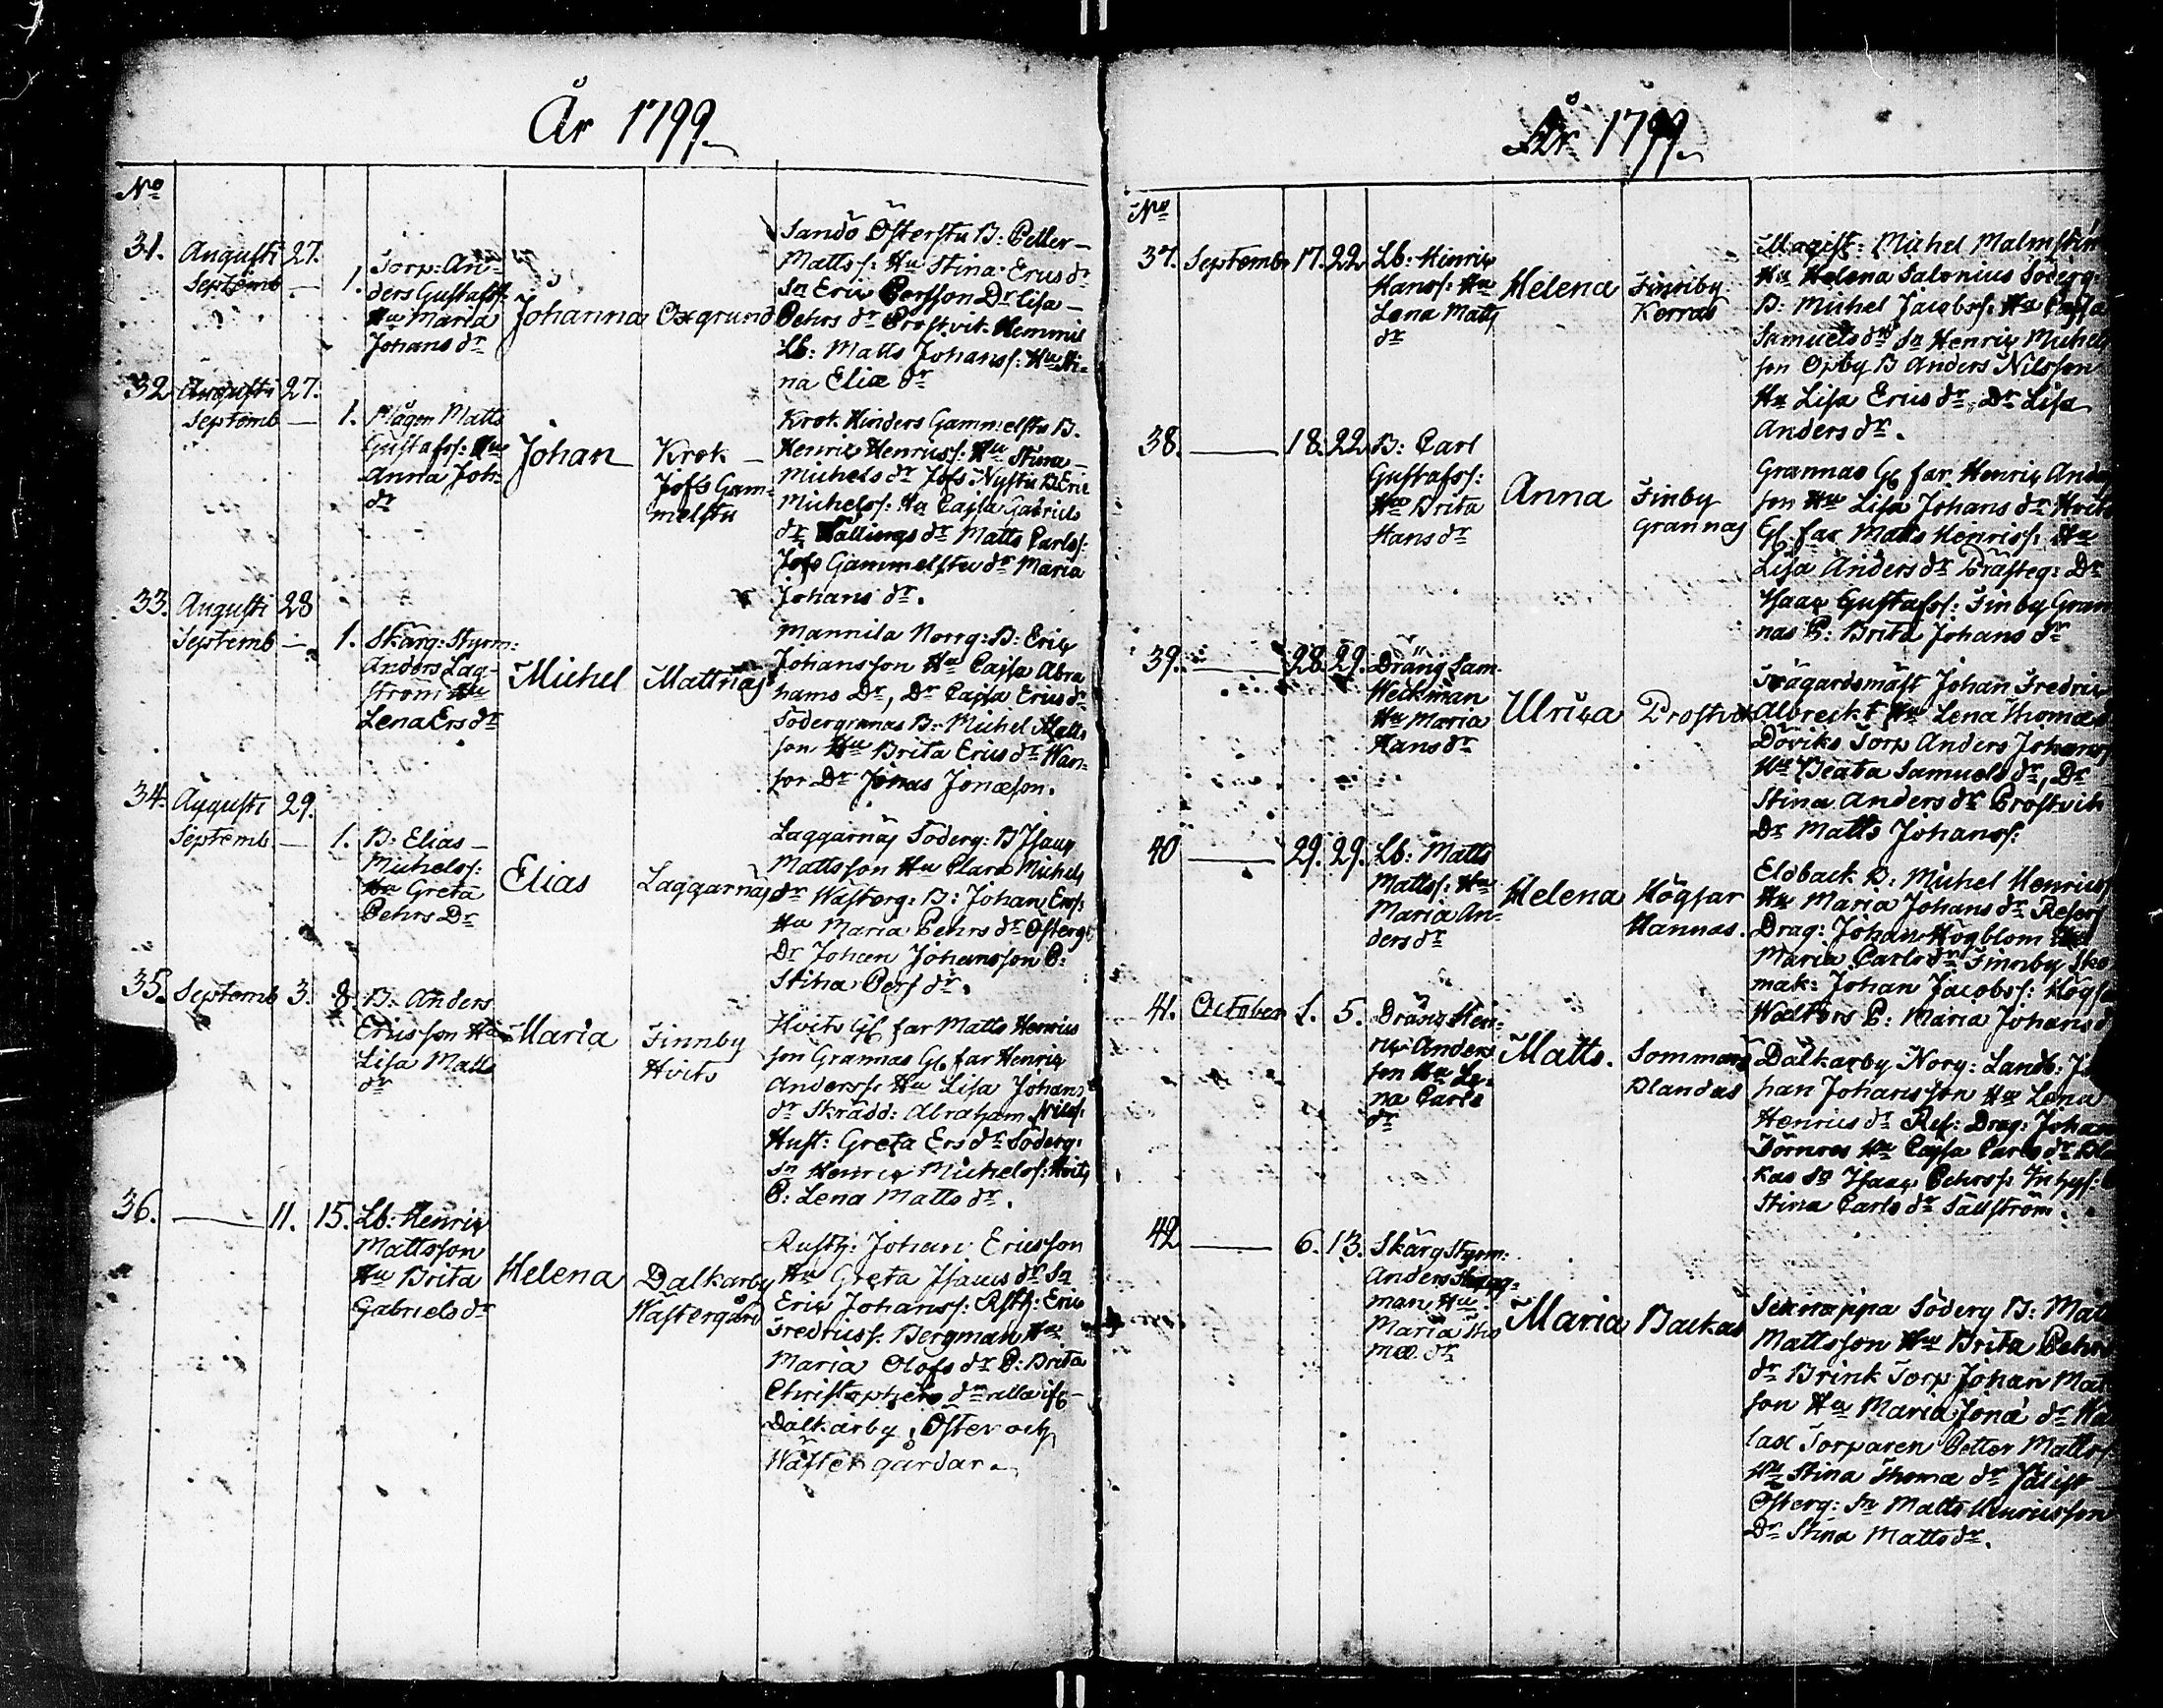 År 1799.
No
31. Augusti 27.
Septemb — 1.
Torp: An-
ders Gustafss:
Hu Maria
Johans dr
Johanna
Oxgrund
Sandö Österstu B: Petter
Matts s: Hu Stina Erics dr
Sn Eric Persson Dr Lisa
Pehrs dr Prostvik Hemmis
Lb: Matts Johanss: Hu Sti-
na Eliæ dr
32 Augusti 27.
Septemb — 1.
Mågen Matts
Gustafss: Hu
Anna Joh:
dr
Johan
Krok
Jofs Gam-
melstu
Krok Hinders Gammelstu B.
Henric Henricss: Hu Stina
Michels dr Jofs Nystu B Eric
Michelss: Hu Cajsa Gabriels
dr Matts Carlss:
Jofs Gammelstu dr Maria
Johans dr.
33. Augusti 28
Septemb — 1.
Skärg: Styrm:
Anders Lag-
ström Hu
Lena Ers dr
Michel
Mattnäs
Mannila Norrg: B: Eric
Johansson Hu Cajsa Abra
hams Dr, Dr Cajsa Erics dr
Södergrannas B: Michel Matts
son Hu Brita Erics dr Wan-
for Dr Jonas Jonæson.
34. Augusti 29.
Septemb — 1.
B: Elias
Michelss:
Hu Greta
Pehrs Dr
Elias
Laggarnäs
Laggarnäs Söderg: B Isaac
Mattsson Hu Clara Michels
dr Wästerg: B: Johan Erss:
Hu Maria Pehrs dr Österg:
Dr Johan Johansson P:
Stina Pers dr.
35. Septemb 3. 8.
B: Anders
Ericsson Hu
Lisa Matts
dr
Maria
Finnby
Hvits
Hvits Gl. far Matts Henrics
son Grannas Gl. far Henric
Anderss: Hu Lisa Johans
dr Skrädd: Abraham Nilss:
Hust: Greta Ers dr Söderg:
Sn Henric Michelss: Hvits
P: Lena Matts dr.
36. — 11. 15.
Lb: Henric
Mattsson
Hu Brita
Gabriels dr
Helena
Dalkarby
Wästergård
Rusth: Johan Ericsson
Hu Greta Isaacs dr Sn
Eric Johanss: Rsth: Eric
Fredricss: Bergman Hu
Maria Olofs dr P: Brita
Christophers dr alla if
Dalkarby, Öster och
Wäster gårdar.
År 1799.
No
37. Septemb 17. 22
Lb: Hinric
Hanss: Hu
Lena Matts
dr
Helena
Finnby
Korras
Magist: Michel Malmstin
Hu Helena Salonius Söderg:
B: Michel Jacobss: Hu Cajsa
Samuels dr Sn Henric Michels
son Öpby B Anders Nilsson
Hu Lisa Erics dr, Dr Lisa
Anders dr.
38. — 18. 22
B: Carl
Gustafss:
Hu Brita
Hans dr
Anna
Finby
Grannas
Grannas Gl. far Henric Anders
son Hu Lisa Johans dr Hvits
Gl. far Matts Henrics: Hu
Lisa Anders dr Prästeg: Dr
Isaac Gustafss: Finby Gran
nas P: Brita Johans dr
39. — 28. 29.
Dräng Sam.
Weckman
Hu Maria
Hans dr
Ulrica
Prostvik
Trägårdsmäst Johan Fredric
Albrecht Hu Lena Thomæ
Döviks Torp Anders Johans
Hu Beata Samuels dr, Dr
Stina Anders dr Prostvik
Dr Matts Johanss:
40 — 29. 29.
Lb: Matts
Mattss: Hu
Maria An-
ders dr
Helena
Högsar
Hannas.
Eldback B: Michel Henricss
Hu Maria Johans dr Reserf
Drag: Johan Högblom Hu
Maria Carls dr Finnby Sko
mak: Johan Jacobss: Högsar
P: Maria Johans d
41. October 1. 5.
Dräng Hen-
ric Anders
son Hu Le-
na Carls
dr
Matts.
Sommarö
Blandas
Dalkarby Norg: Landb: Jo
han Johansson Hu Lena
Henrics dr Ref: Drag: Johan
Törnros Hu Cajsa Carls dr
kas dr Isaac Pehrss: Inhys:
Stina Carls dr Sällström.
42 — 6. 13.
Skärg Styrm:
Anders
man Hu
Maria Tho
mæ dr
Maria
Backas
Seknappa Söderg B: Matts
Mattsson Hu Brita Pehrs
dr Brink Torp Johan Mats
son Hu Maria Jonæ dr
lax Torparen Petter Mattss
Hu Stina Thomæ dr
Österg: Sn Matts Henricsson
Dr Stina Matts dr.